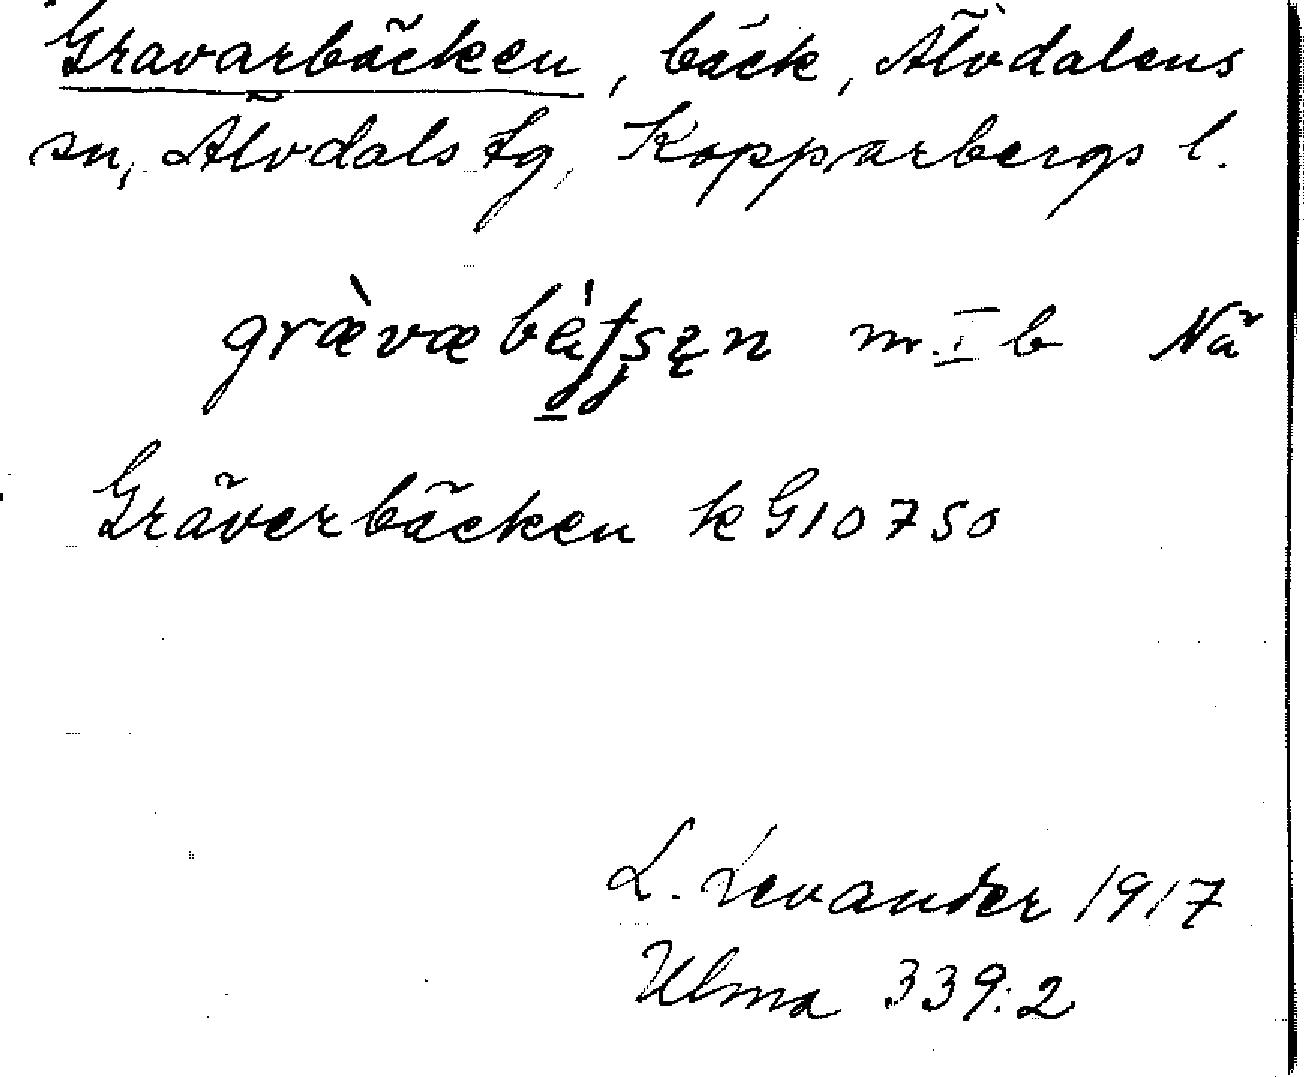 Gravarbäcken, bäck, Älvdalens
sn, Älvdals tg, Kopparbergs l.
grævæ m. I b Nä
Gräverbäcken k G10750
L. Levander 1917
Ulma 339:2